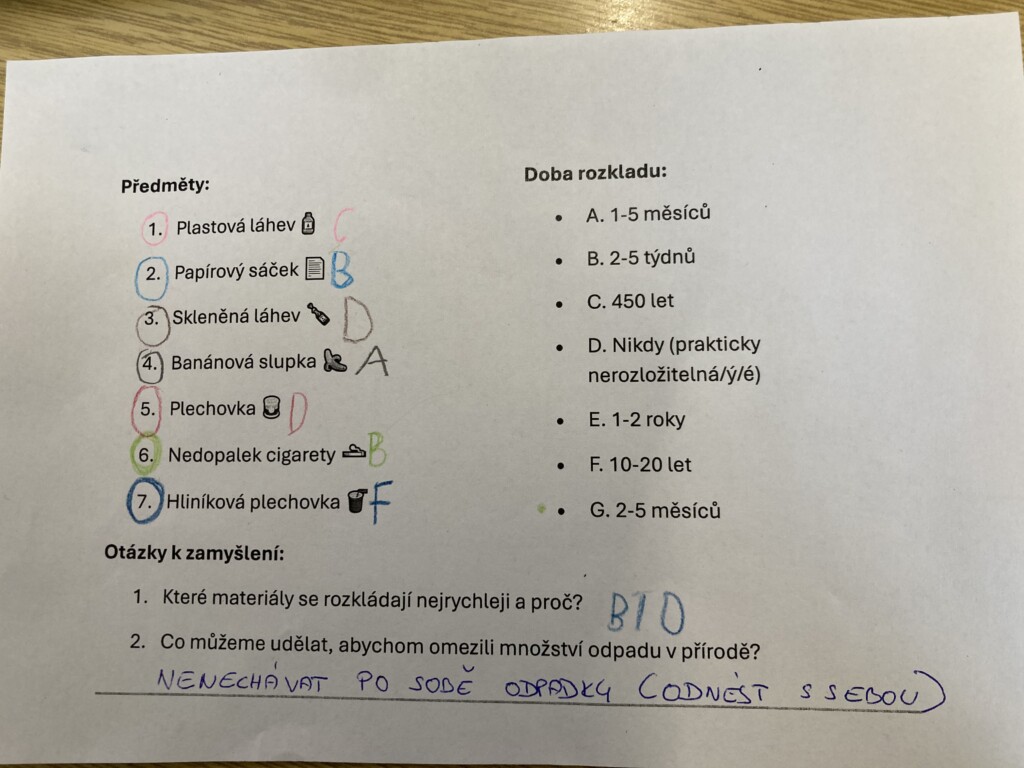 Předměty:
1. Plastová láhev C
2. Papírový sáček B
3. Skleněná láhev D
4. Banánová slupka A
5. Plechovka D
6. Nedopalek cigarety B
7. Hliníková plechovka F
Doba rozkladu:
• A. 1-5 měsíců
• B. 2-5 týdnů
• C. 450 let
• D. Nikdy (prakticky
nerozložitelná/ý/é)
• E. 1-2 roky
• F. 10-20 let
• G. 2-5 měsíců
Otázky k zamyšlení:
1. Které materiály se rozkládají nejrychleji a proč? BIO
2. Co můžeme udělat, abychom omezili množství odpadu v přírodě?
NENECHÁVAT PO SOBĚ ODPADKY (ODNÉST S SEBOU)